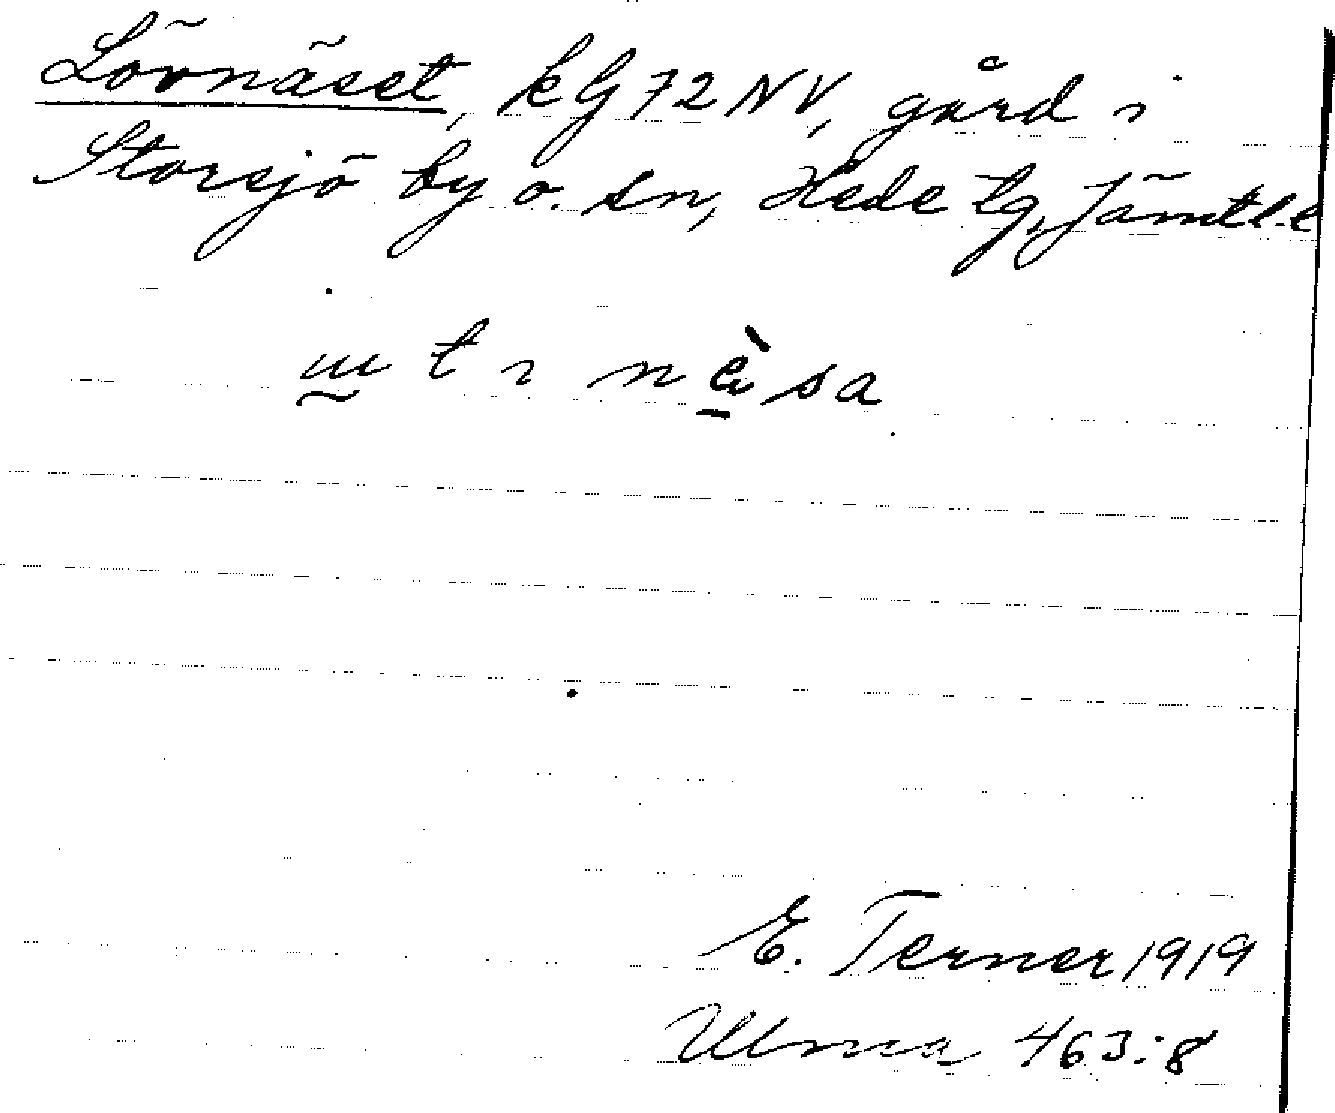 Lövnäset, kG 72 NV, gård i
Storsjö by o. sn, Hede tg, Jämtl. l
ut ı nèsa
E. Terner 1919
Ulma 463:8